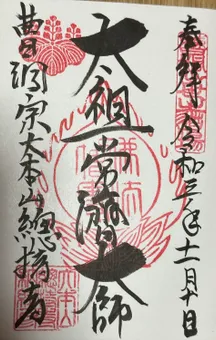 奉拝 令和五年十一月十日
太祖常済大師
曹洞宗大本山總持寺